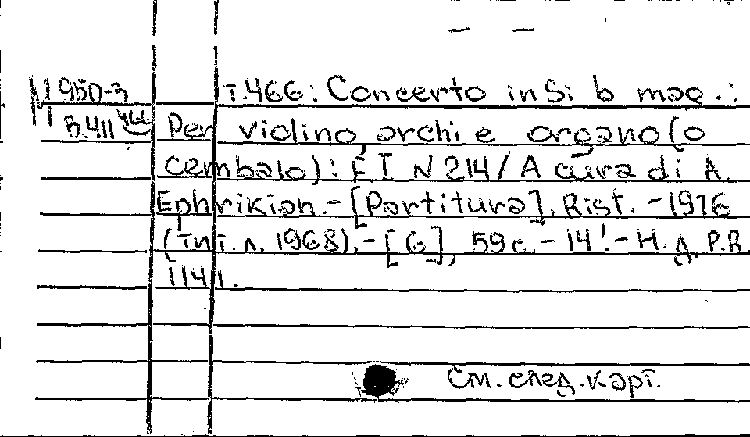 М950-3 Т.466: Concerto in Si b mag.:
В.411 466 Per violino, archi e organo (o
cembalo): F I N 214 / A cura di A.
Ephrikian. - [Partitura]. Rist. - 1976
(тит. л. 1968). - [6], 59 с. - 14'. - Н. д. P.R.
1141.
См. след. карт.